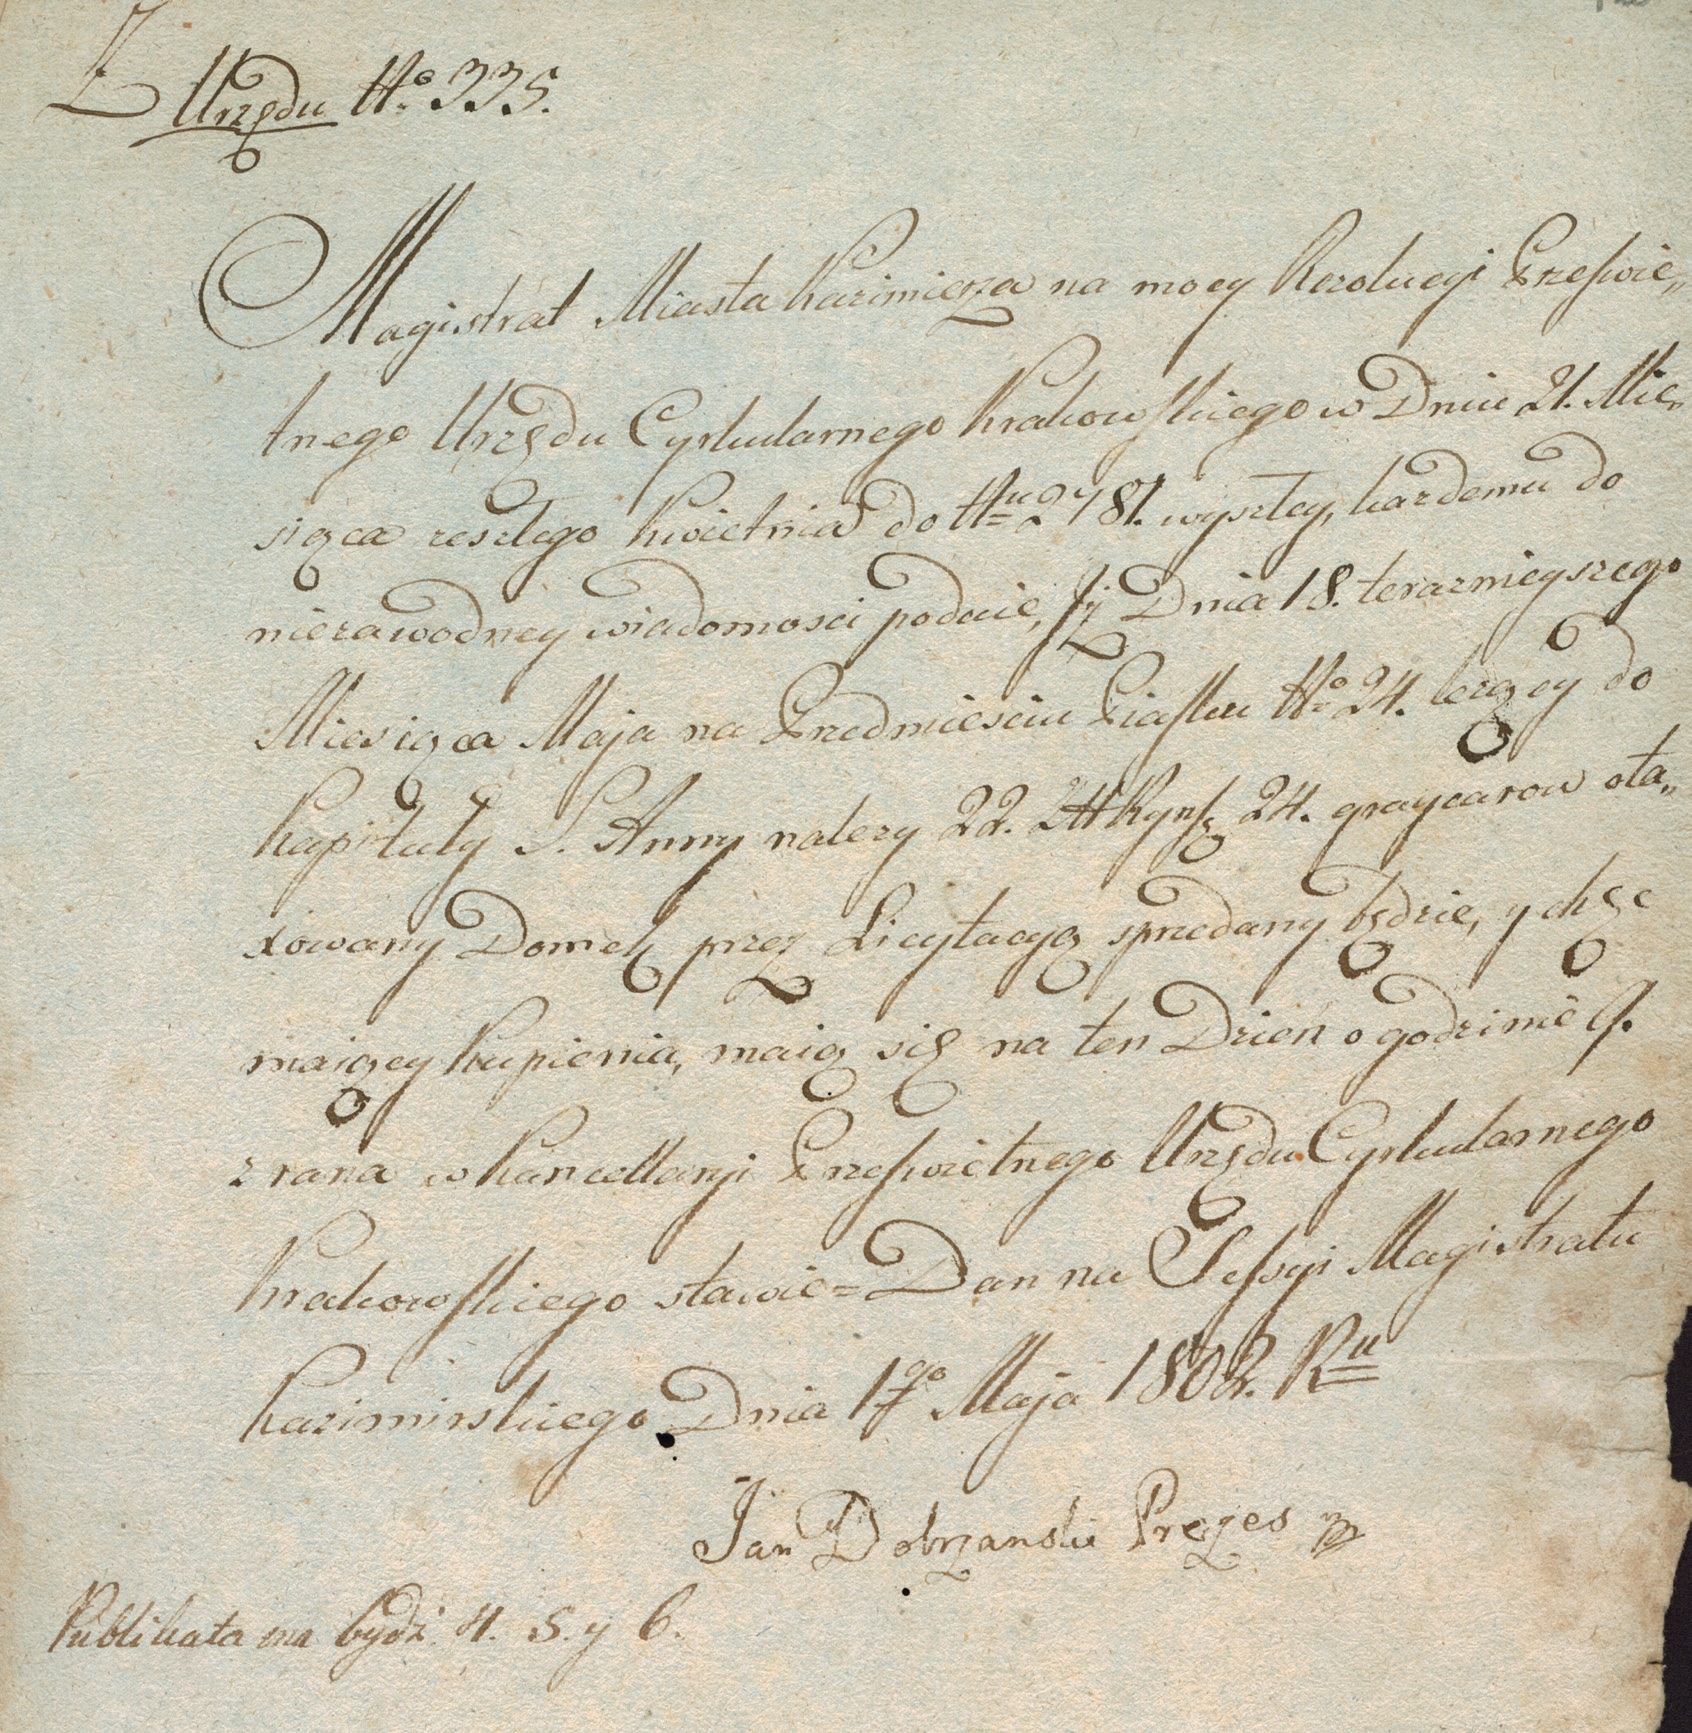 Z Urzędu No. 335.
Magistrat Miasta Kazimierza na mocy Rezolucyi Prześwie„
tnego Urzędu Cyrkularnego Krakowskiego w Dniu 21. Mie„
siąca zeszłego Kwietnia do Nu 2781. wyszłey, każdemu do
niezawodney wiadomosci podaie, iż Dnia 18. teraznieyszego
Miesiąca Maja na Przedmiesciu Piasku No. 24. lezący do
Kapituły S. Anny nalezy 22. ZłRyńs 24. graycarow ota„
xowany Domek przez Licytacyą sprzedany będzie, y chęc
maiący kupienia, maią się na ten Dzień o godzinie 9.
z rana w Kancellaryi Prześwietnego Urzędu Cyrkularnego
Krakowskiego stawić = Dan na Sessyi Magistratu
Kazimirskiego Dnia 1go Maja 1802. Ru
Jan Dobrzanski Prezes
Publikata ma bydź 4. 5. y 6.